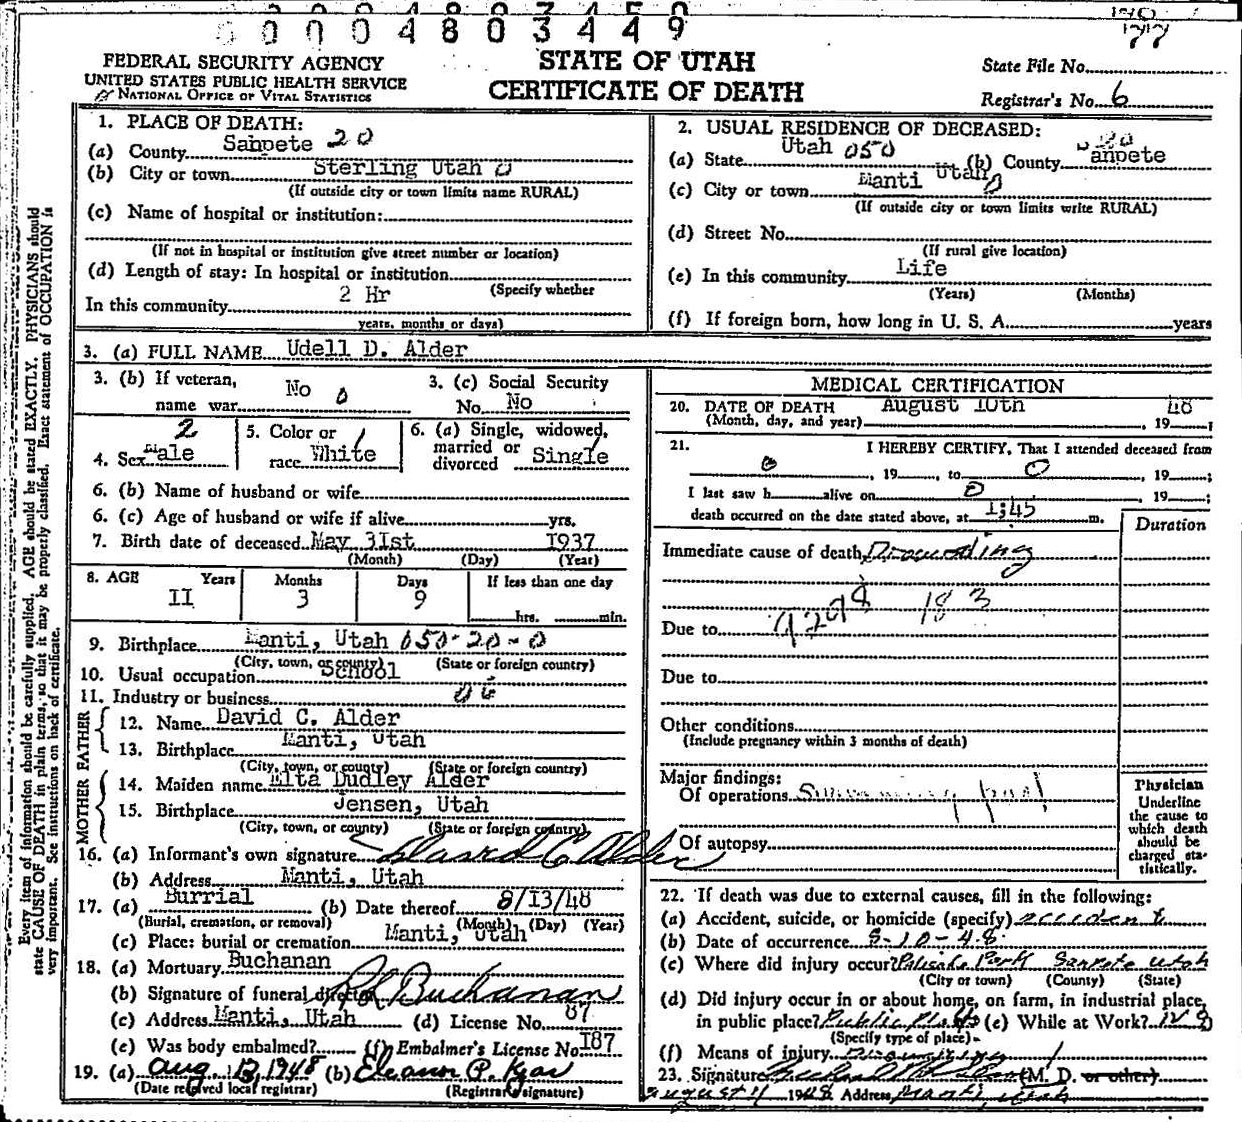 0 0 0 4 8 0 3 4 4 9
77
FEDERAL SECURITY AGENCY
UNITED STATES PUBLIC HEALTH SERVICE
NATIONAL OFFICE OF VITAL STATISTICS
STATE OF UTAH
CERTIFICATE OF DEATH
State File No.
Registrar's No. 6
Every item of information should be carefully supplied. AGE should be stated EXACTLY. PHYSICIANS should
state CAUSE OF DEATH in plain terms, so that it may be properly classified. Exact statement of OCCUPATION is
very important. See instructions on back of certificate.
1. PLACE OF DEATH:
(a) County Sanpete 20
(b) City or town Sterling Utah 0
(If outside city or town limits name RURAL)
(c) Name of hospital or institution:
(If not in hospital or institution give street number or location)
(d) Length of stay: In hospital or institution
(Specify whether
In this community 2 Hr
years, months or days)
2. USUAL RESIDENCE OF DECEASED:
(a) State Utah 050 (b) County anpete
(c) City or town Manti Utah
(If outside city or town limits write RURAL)
(d) Street No.
(If rural give location)
(e) In this community Life
(Years) (Months)
(f) If foreign born, how long in U. S. A. years
3. (a) FULL NAME Udell D. Alder
3. (b) If veteran,
name war No 0
3. (c) Social Security
No. No
4. Sex Male 2
5. Color or
race White 1
6. (a) Single, widowed,
married or
divorced Single 1
6. (b) Name of husband or wife
6. (c) Age of husband or wife if alive yrs.
7. Birth date of deceased May 31st 1937
(Month) (Day) (Year)
8. AGE Years Months Days If less than one day
II 3 9 hrs. min.
9. Birthplace Manti, Utah 050-20-0
(City, town, or county) (State or foreign country)
10. Usual occupation School
11. Industry or business
FATHER
12. Name David C. Alder
13. Birthplace Manti, Utah
(City, town, or county) (State or foreign country)
MOTHER
14. Maiden name Elta Dudley Alder
15. Birthplace Jensen, Utah
(City, town, or county) (State or foreign country)
16. (a) Informant's own signature David C Alder
(b) Address Manti, Utah
17. (a) Burrial (b) Date thereof 8/13/48
(Burial, cremation, or removal) (Month) (Day) (Year)
(c) Place: burial or cremation Manti, Utah
18. (a) Mortuary Buchanan
(b) Signature of funeral director Buchanan
(c) Address Manti, Utah (d) License No. 87
(e) Was body embalmed? (f) Embalmer's License No. I87
19. (a) Aug. 13, 1948 (b) Eleanor P.
(Date received local registrar) (Registrar's signature)
MEDICAL CERTIFICATION
20. DATE OF DEATH August 10th 1948;
(Month, day, and year)
21. I HEREBY CERTIFY, That I attended deceased from
0, 19 , to 0 , 19 ;
I last saw h alive on 0 , 19 ;
death occurred on the date stated above, at 1:45 m.
Duration
Immediate cause of death Drowning
183
Due to
Due to
Other conditions
(Include pregnancy within 3 months of death)
Major findings:
Of operations Swimming pool
Of autopsy
Physician
Underline
the cause to
which death
should be
charged sta-
tistically.
22. If death was due to external causes, fill in the following:
(a) Accident, suicide, or homicide (specify) accident
(b) Date of occurrence 8-10-48
(c) Where did injury occur? Palisade Park Sanpete Utah
(City or town) (County) (State)
(d) Did injury occur in or about home, on farm, in industrial place,
in public place? Public (e) While at Work?
(Specify type of place)
(f) Means of injury Drowning
23. Signature (M. D. or other)
August 11 1948 Address Manti, Utah